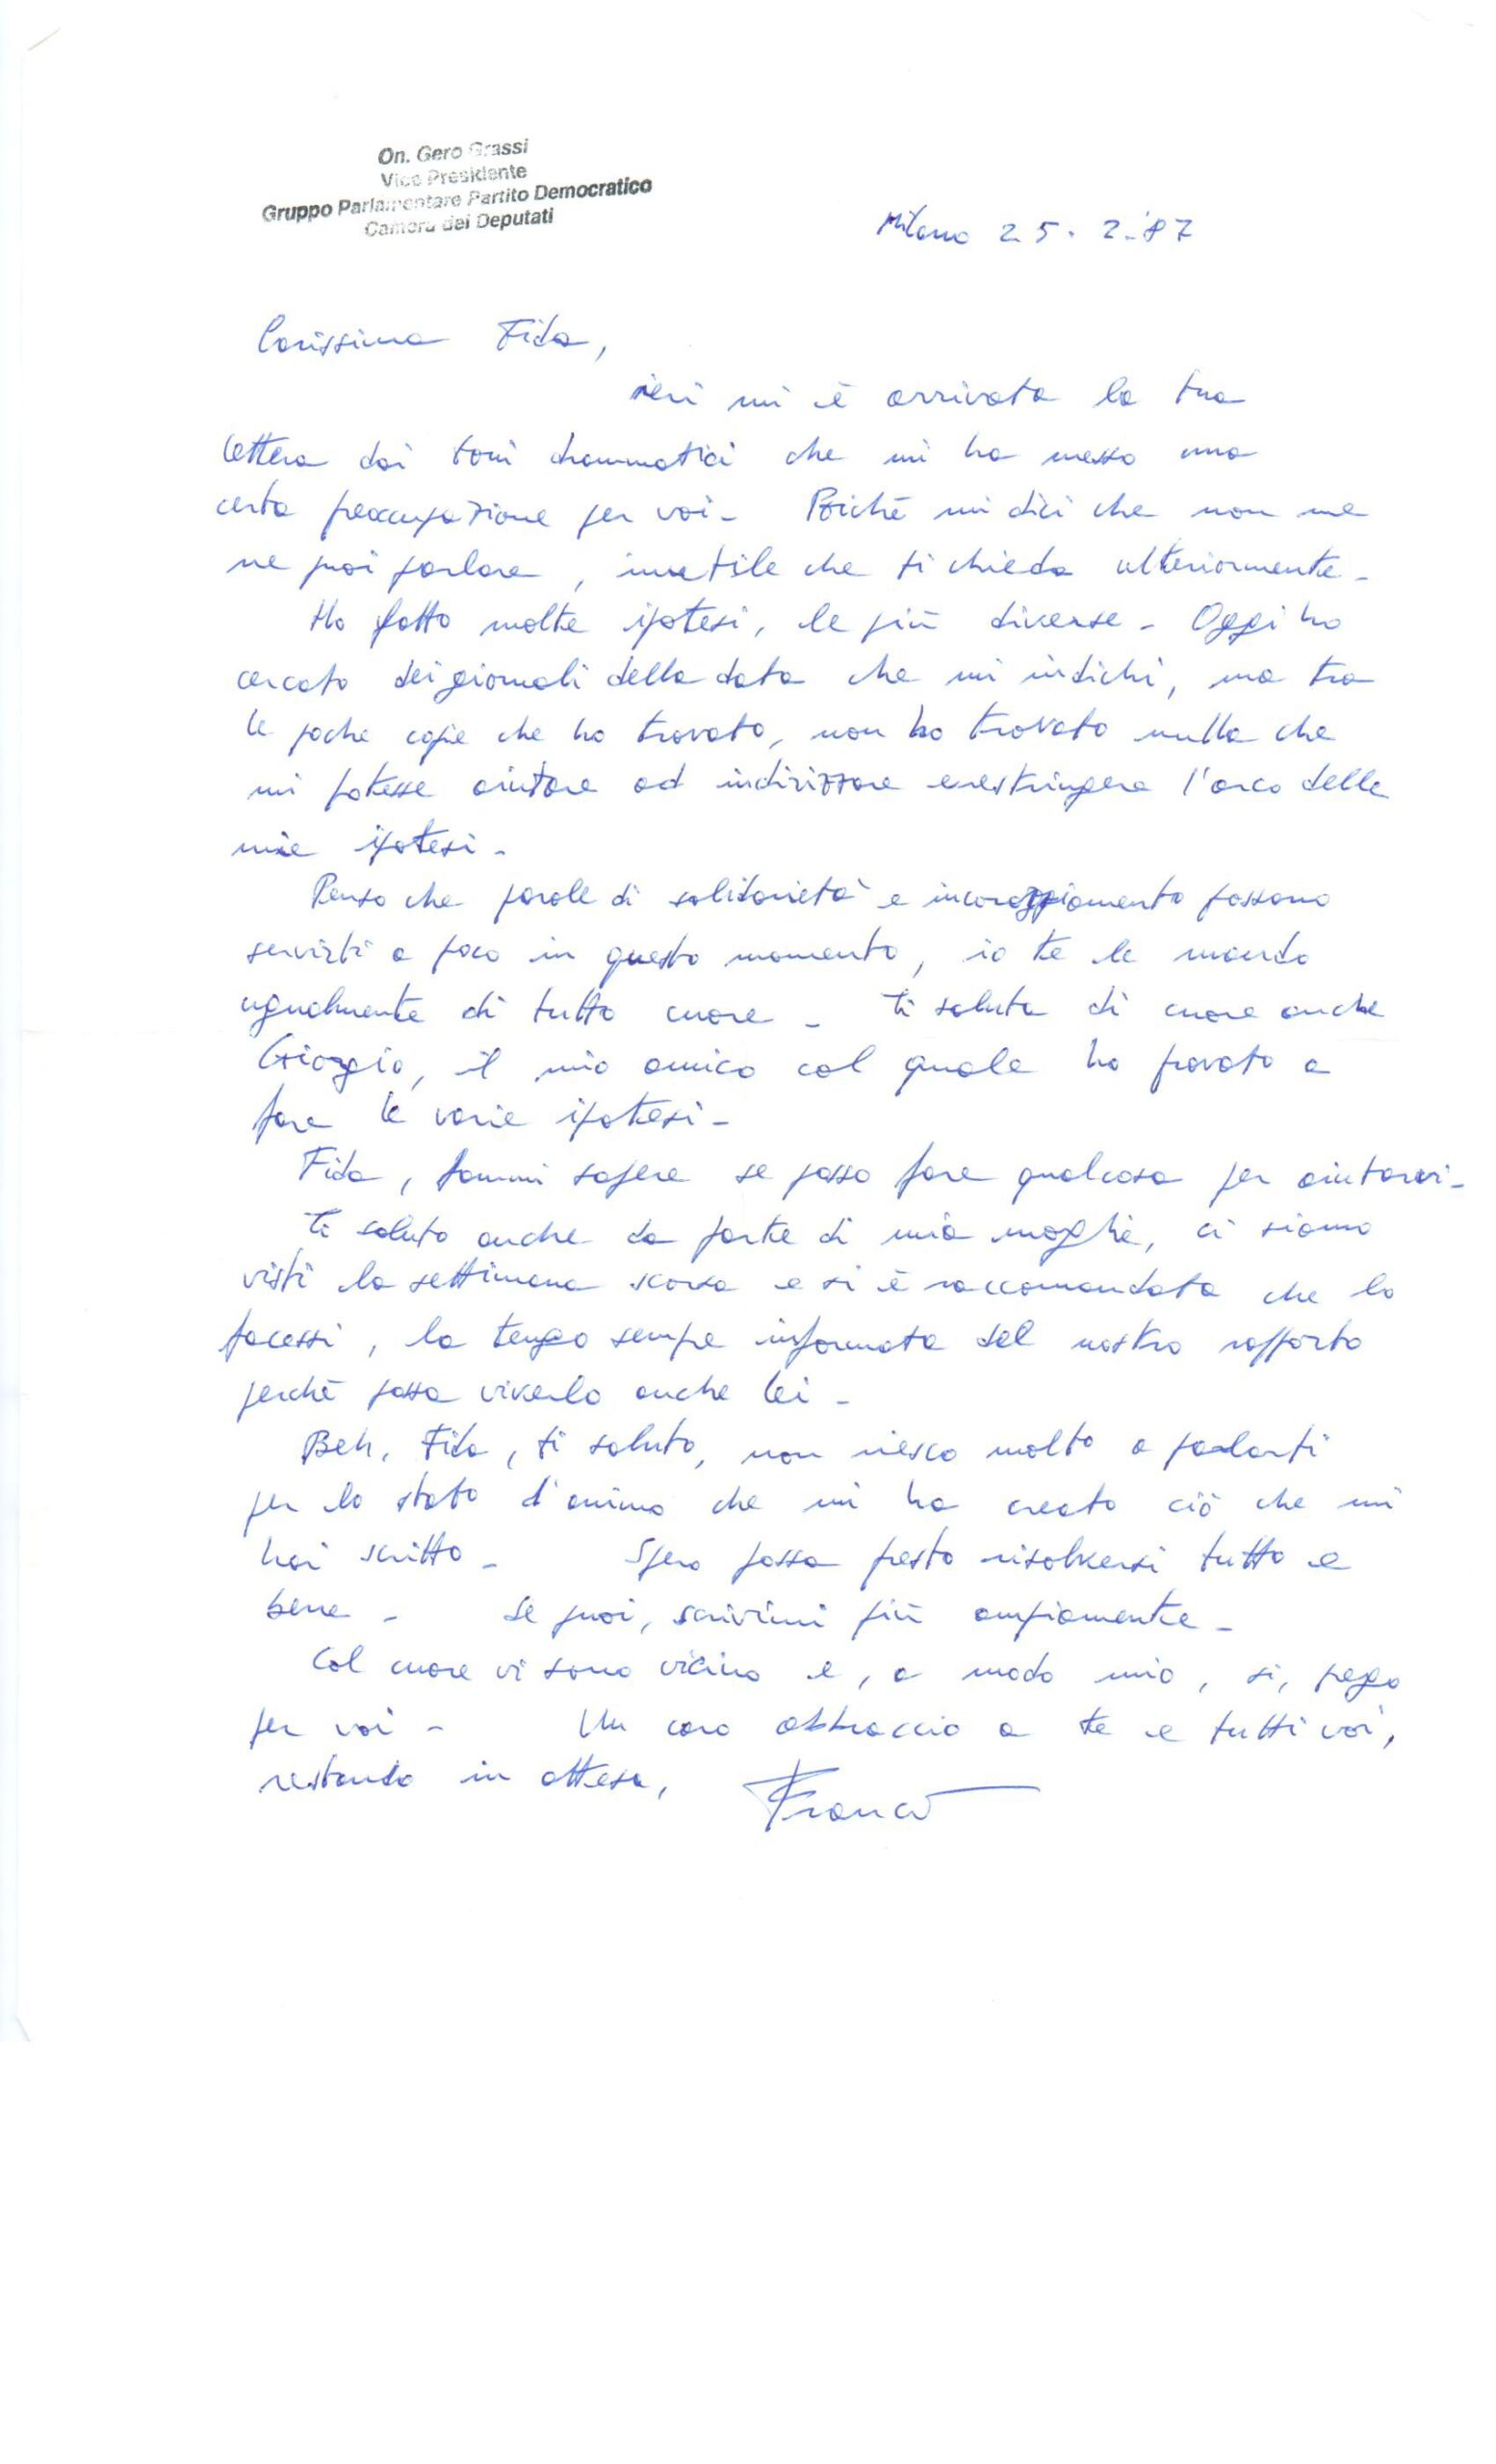 On. Gero Grassi
Vice Presidente
Gruppo Parlamentare Partito Democratico
Camera dei Deputati
Milano 25.2.'87
Carissima Fida,
ieri mi è arrivata la tua
lettera dai toni drammatici che mi ha messo una
certa preoccupazione per voi - Poiché mi dici che non me
ne puoi parlare, inutile che ti chieda ulteriormente -
Ho fatto molte ipotesi, le più diverse - Oggi ho
cercato dei giornali della data che mi indichi, ma tra
le poche copie che ho trovato, non ho trovato nulla che
mi potesse aiutare ad indirizzare e restringere l'arco delle
mie ipotesi -
Penso che parole di solidarietà e incoraggiamento possano
servirti a poco in questo momento, io te le mando
ugualmente di tutto cuore - Ti saluta di cuore anche
Giorgio, il mio amico col quale ho provato a
fare le varie ipotesi -
Fida, fammi sapere se posso fare qualcosa per aiutarvi -
Ti saluto anche da parte di mia moglie, ci siamo
visti la settimana scorsa e si è raccomandata che lo
facessi, la tengo sempre informata del nostro rapporto
perché possa viverlo anche lei -
Beh, Fida, ti saluto, non riesco molto a parlarti
per lo stato d'animo che mi ha creato ciò che mi
hai scritto - Spero possa presto risolversi tutto e
bene - Se puoi, scrivimi più ampiamente -
Col cuore vi sono vicino e, a modo mio, si, prego
per voi - Un caro abbraccio a te e tutti voi,
restando in attesa,
Franco